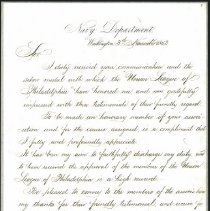 Navy Department
Washington 5th December 1863
Sir
I duly received your communication and the
silver medal with which the Union League of
Philadelphia have honored me, and am gratefully
impressed with these testimonials of their friendly regard.
To be made an honorary member of your associ-
ation and for the reasons assigned, is a compliment that
I fully and profoundly appreciate.
It has been my aim to faithfully discharge my duty, and
to have received the approval of the members of the Union
League of Philadelphia is a high reward.
Be pleased to convey to the members of the association
my thanks for their friendly testimonial, and